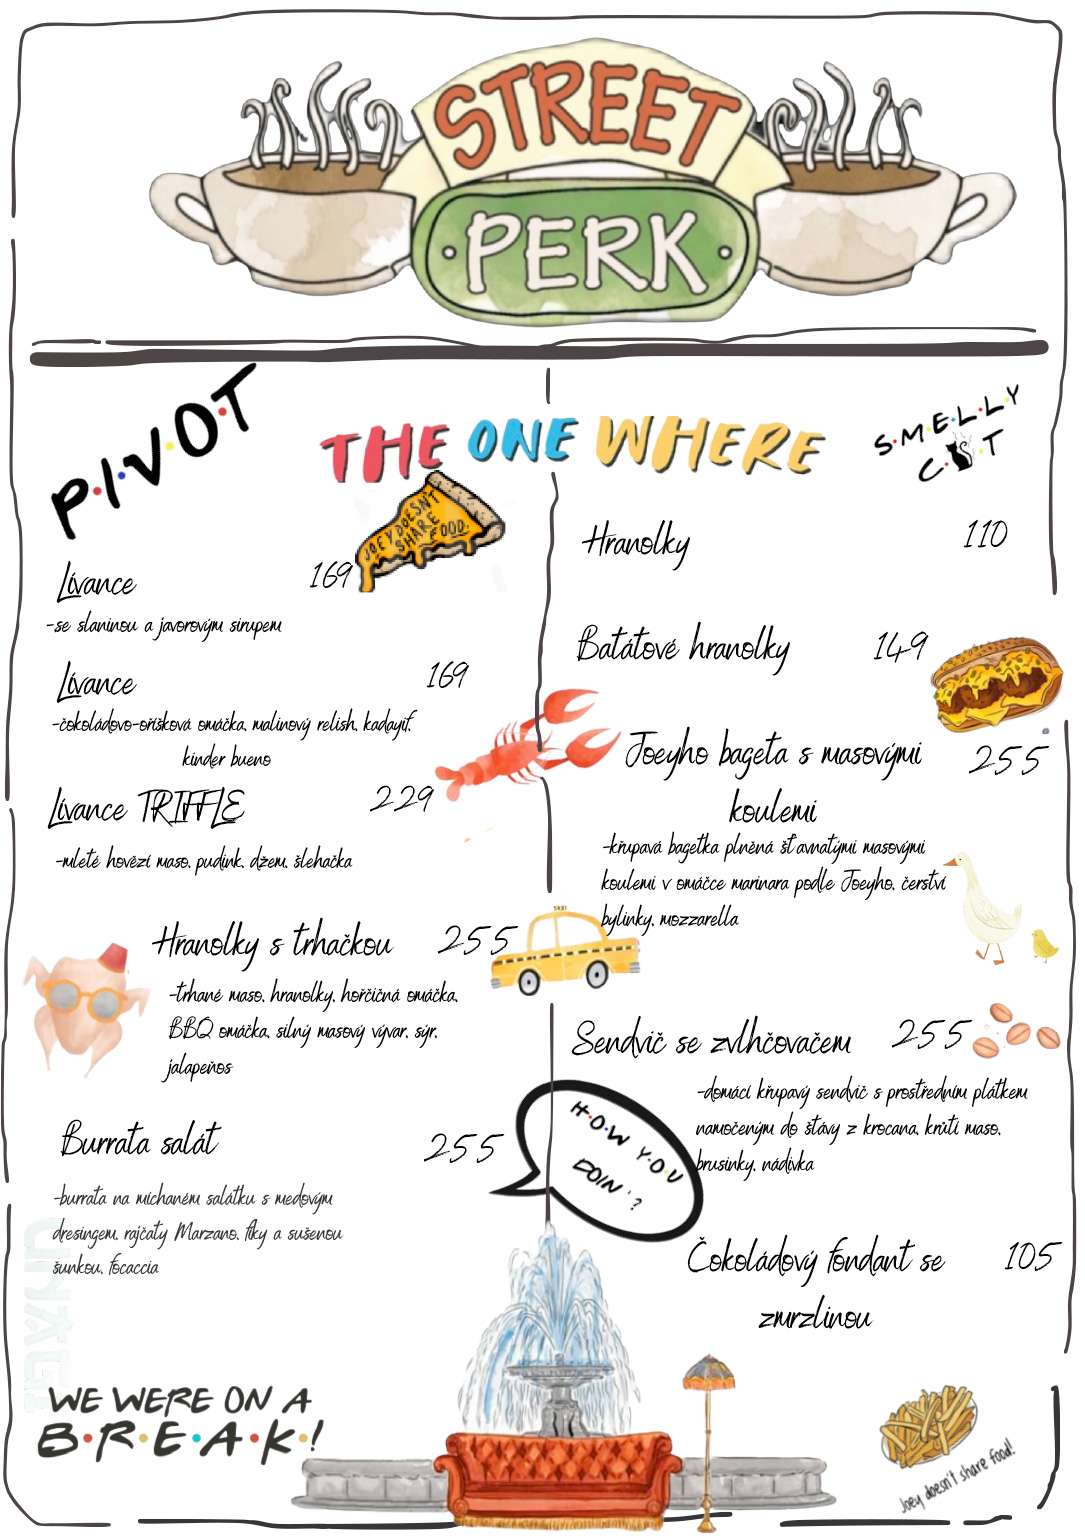 STREET
PERK
P·I·V·O·T
THE ONE WHERE
S·M·E·L·L·Y
C·T
JOEY DOESN'T
SHARE
FOOD.
Lívance 169
-se slaninou a javorovým sirupem
Lívance 169
-čokoládovo-oříšková omáčka, malinový relish, kadayif,
kinder bueno
Lívance TRIFFLE 229
-mleté hovězí maso, pudink, džem, šlehačka
Hranolky s trhačkou 255
-trhané maso, hranolky, hořčičná omáčka,
BBQ omáčka, silný masový vývar, sýr,
jalapeňos
Burrata salát 255
-burrata na míchaném salátku s medovým
dresingem, rajčaty Marzano, fíky a sušenou
šunkou, focaccia
Hranolky 110
Batátové hranolky 149
Joeyho bageta s masovými 255
koulemi
-křupavá bagetka plněná šťavnatými masovými
koulemi v omáčce marinara podle Joeyho, čerství
bylinky, mozzarella
TAXI
Sendvič se zvlhčovačem 255
-domácí křupavý sendvič s prostředním plátkem
namočeným do šťávy z krocana, krůtí maso,
brusinky, nádivka
H·O·W Y·O·U
DOIN'?
Čokoládový fondant se 105
zmrzlinou
WE WERE ON A
B·R·E·A·K·!
Joey doesn't share food!